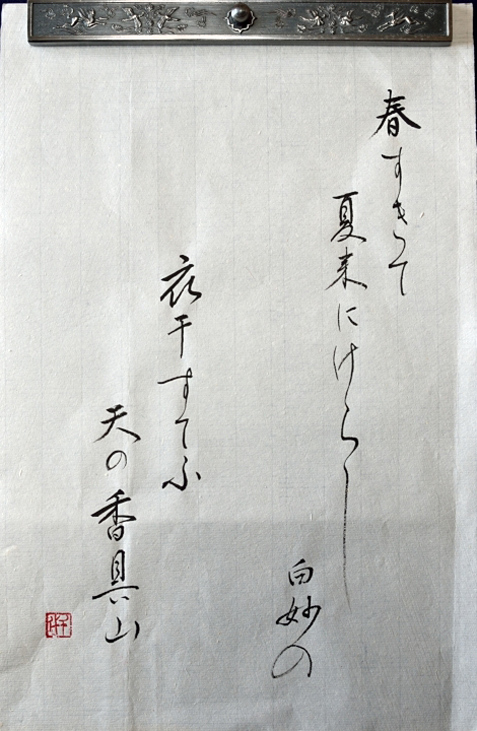 春すきて
夏来にけらし
白妙の
衣干すてふ
天の香具山